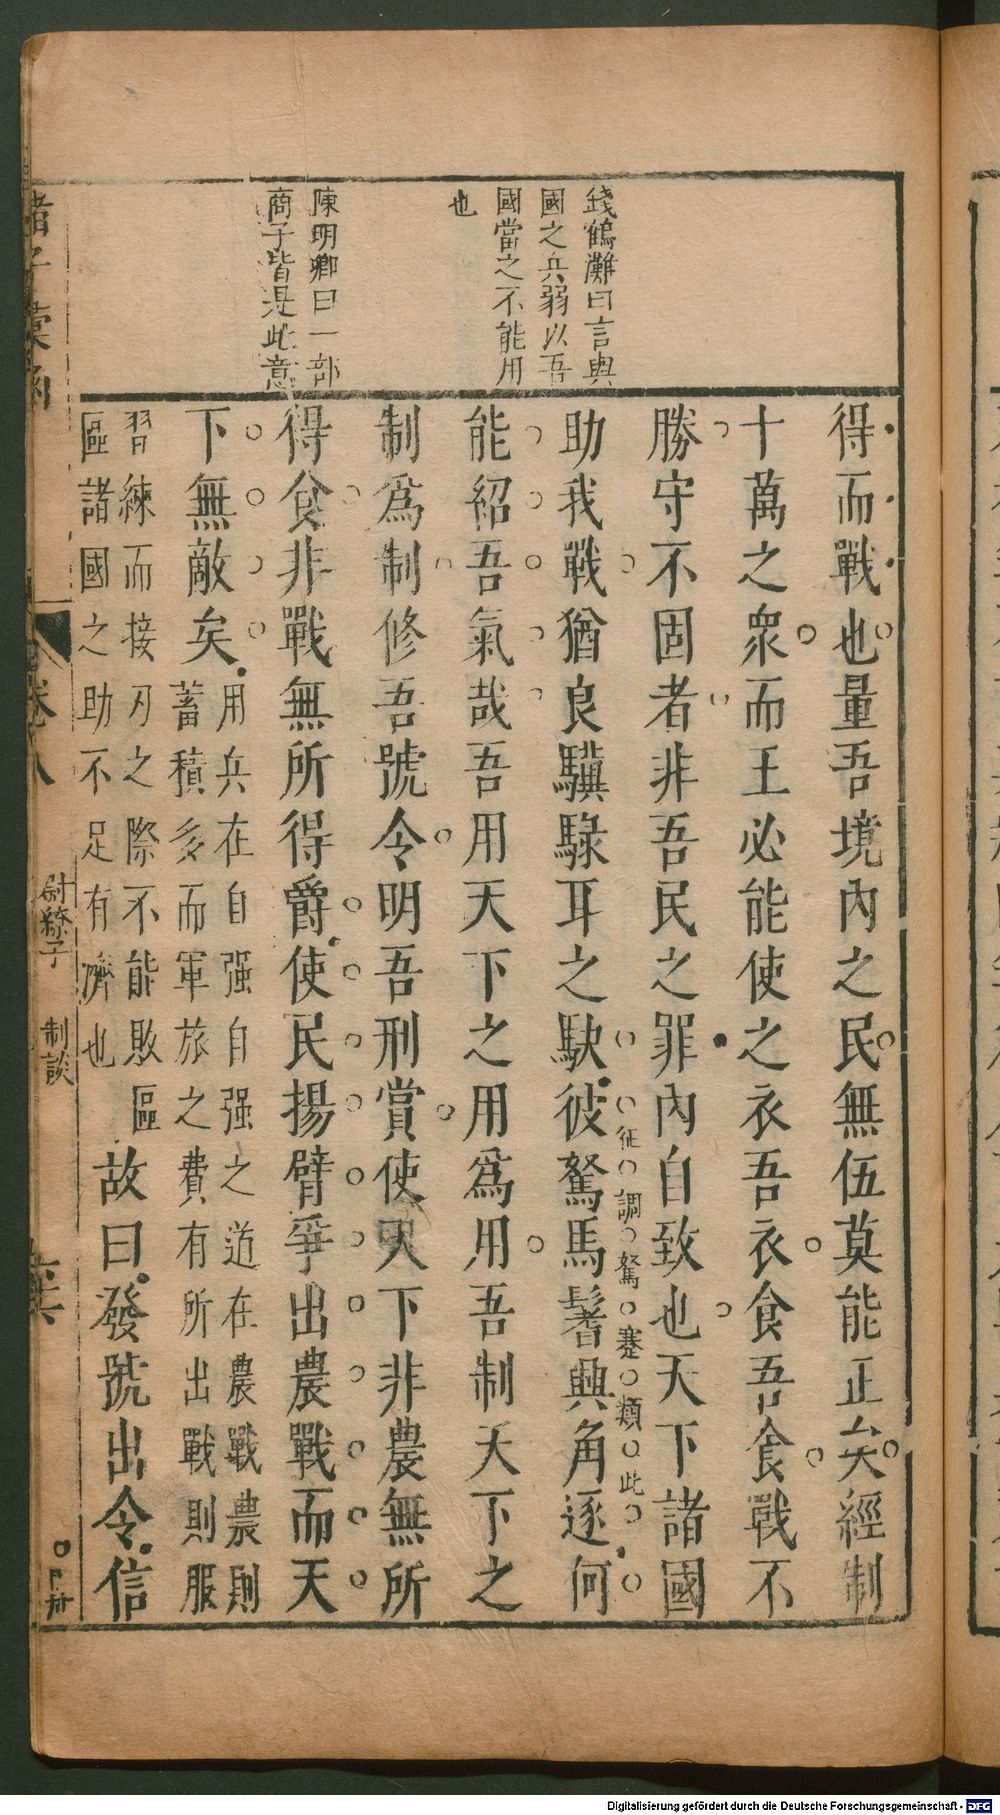 錢鶴灘曰言與
國之兵弱以吾
國當之不能用
也
陳明卿曰一部
商子皆是此意
得而戰也量吾境內之民無伍莫能正矣經制
十萬之衆而王必能使之衣吾衣食吾食戰不
勝守不固者非吾民之罪內自致也天下諸國
助我戰猶良驥騄耳之駃彼駑馬鬐興角逐何
征調駑蹇類此
能紹吾氣哉吾用天下之用爲用吾制天下之
制爲制修吾號令明吾刑賞使天下非農無所
得食非戰無所得爵使民揚臂爭出農戰而天
下無敵矣
用兵在自强自强之道在農戰農則
蓄積多而軍旅之費有所出戰則服
習練而接刃之際不能敗區
區諸國之助不足有濟也
故曰發號出令信
諸子彙函
卷八
尉繚子
制談
Digitalisierung gefördert durch die Deutsche Forschungsgemeinschaft - DFG